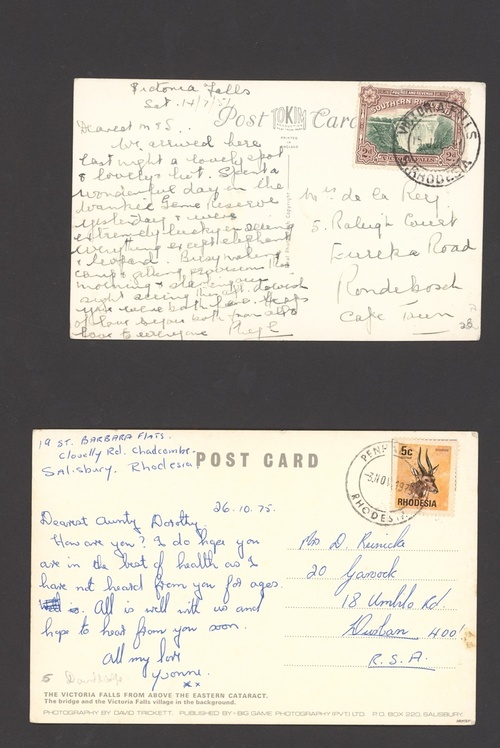 Victoria Falls
Sat. 14/7/51
Post TOKIM Card
PRINTED IN ENGLAND
Dearest
We arrived here
last night a lovely spot
& lovely hot. Spent a
wonderful day in the
Wankie Game Reserve
yesterday & were
extremely lucky in seeing
everything except elephant
& leopard. Busy making
camp & getting provisions this
morning &
sight seeing this aft.
you were both here. Heaps
of love to you both from all &
love to everyone
SOUTHERN RHODESIA
2d 2d
VICTORIA FALLS
VICTORIA FALLS
S. RHODESIA
Mrs de la Rey
5. Raleigh Court
Eureka Road
Rondebosch
Cape Town
19 ST. BARBARA FLATS.
Clovelly Rd. Chadcombe.
Salisbury. Rhodesia
POST CARD
26.10.75.
Dearest Aunty Dorothy,
How are you? I do hope you
are in the best of health as I
have not heard from you for ages.
All is well with us and
hope to hear from you soon.
All my love
Yvonne.
xx
5c
RHODESIA
RHODESIA
Mrs D. Reinicke
20 Garvock
18 Umbilo Rd.
Durban 4001
R.S.A.
5
THE VICTORIA FALLS FROM ABOVE THE EASTERN CATARACT.
The bridge and the Victoria Falls village in the background.
PHOTOGRAPHY BY DAVID TRICKETT. PUBLISHED BY: BIG GAME PHOTOGRAPHY (PVT) LTD. P.O. BOX 220, SALISBURY.